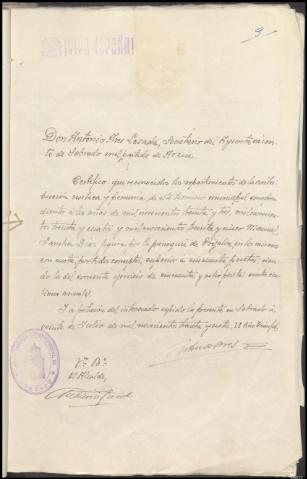 ¡VIVA ESPAÑA!
9
Don Antonio Ares Losada, Secretario del Ayuntamien-
to de Sobrado en el partido de Arzua
Certifico: que reconocidos los repartimientos de la contri-
bución rustica y pecuaria, de este termino municipal correspon-
dientes a los años de mil novecientos treinta y tres, mil novecien-
tos treinta y cuatro y mil novecientos treinta y cinco Manuel
Sanchez Diaz figura por la parroquia de en los mismos
con cuota por todos conceptos, inferior a cincuenta pesetas, sien-
do la del corriente ejercicio de cincuenta y ocho pesetas
centimos anuales.
Y a petición del interesado expido la presente en Sobrado a
veinte de Julio de mil novecientos treinta y siete, II Año Triunfal.
Vº Bº
El Alcalde,